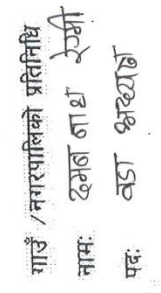 गाउँ /नगरपालिको प्रतिनिधि
नामः दमन नाथ रेग्मी
पदः वडा अध्यक्ष